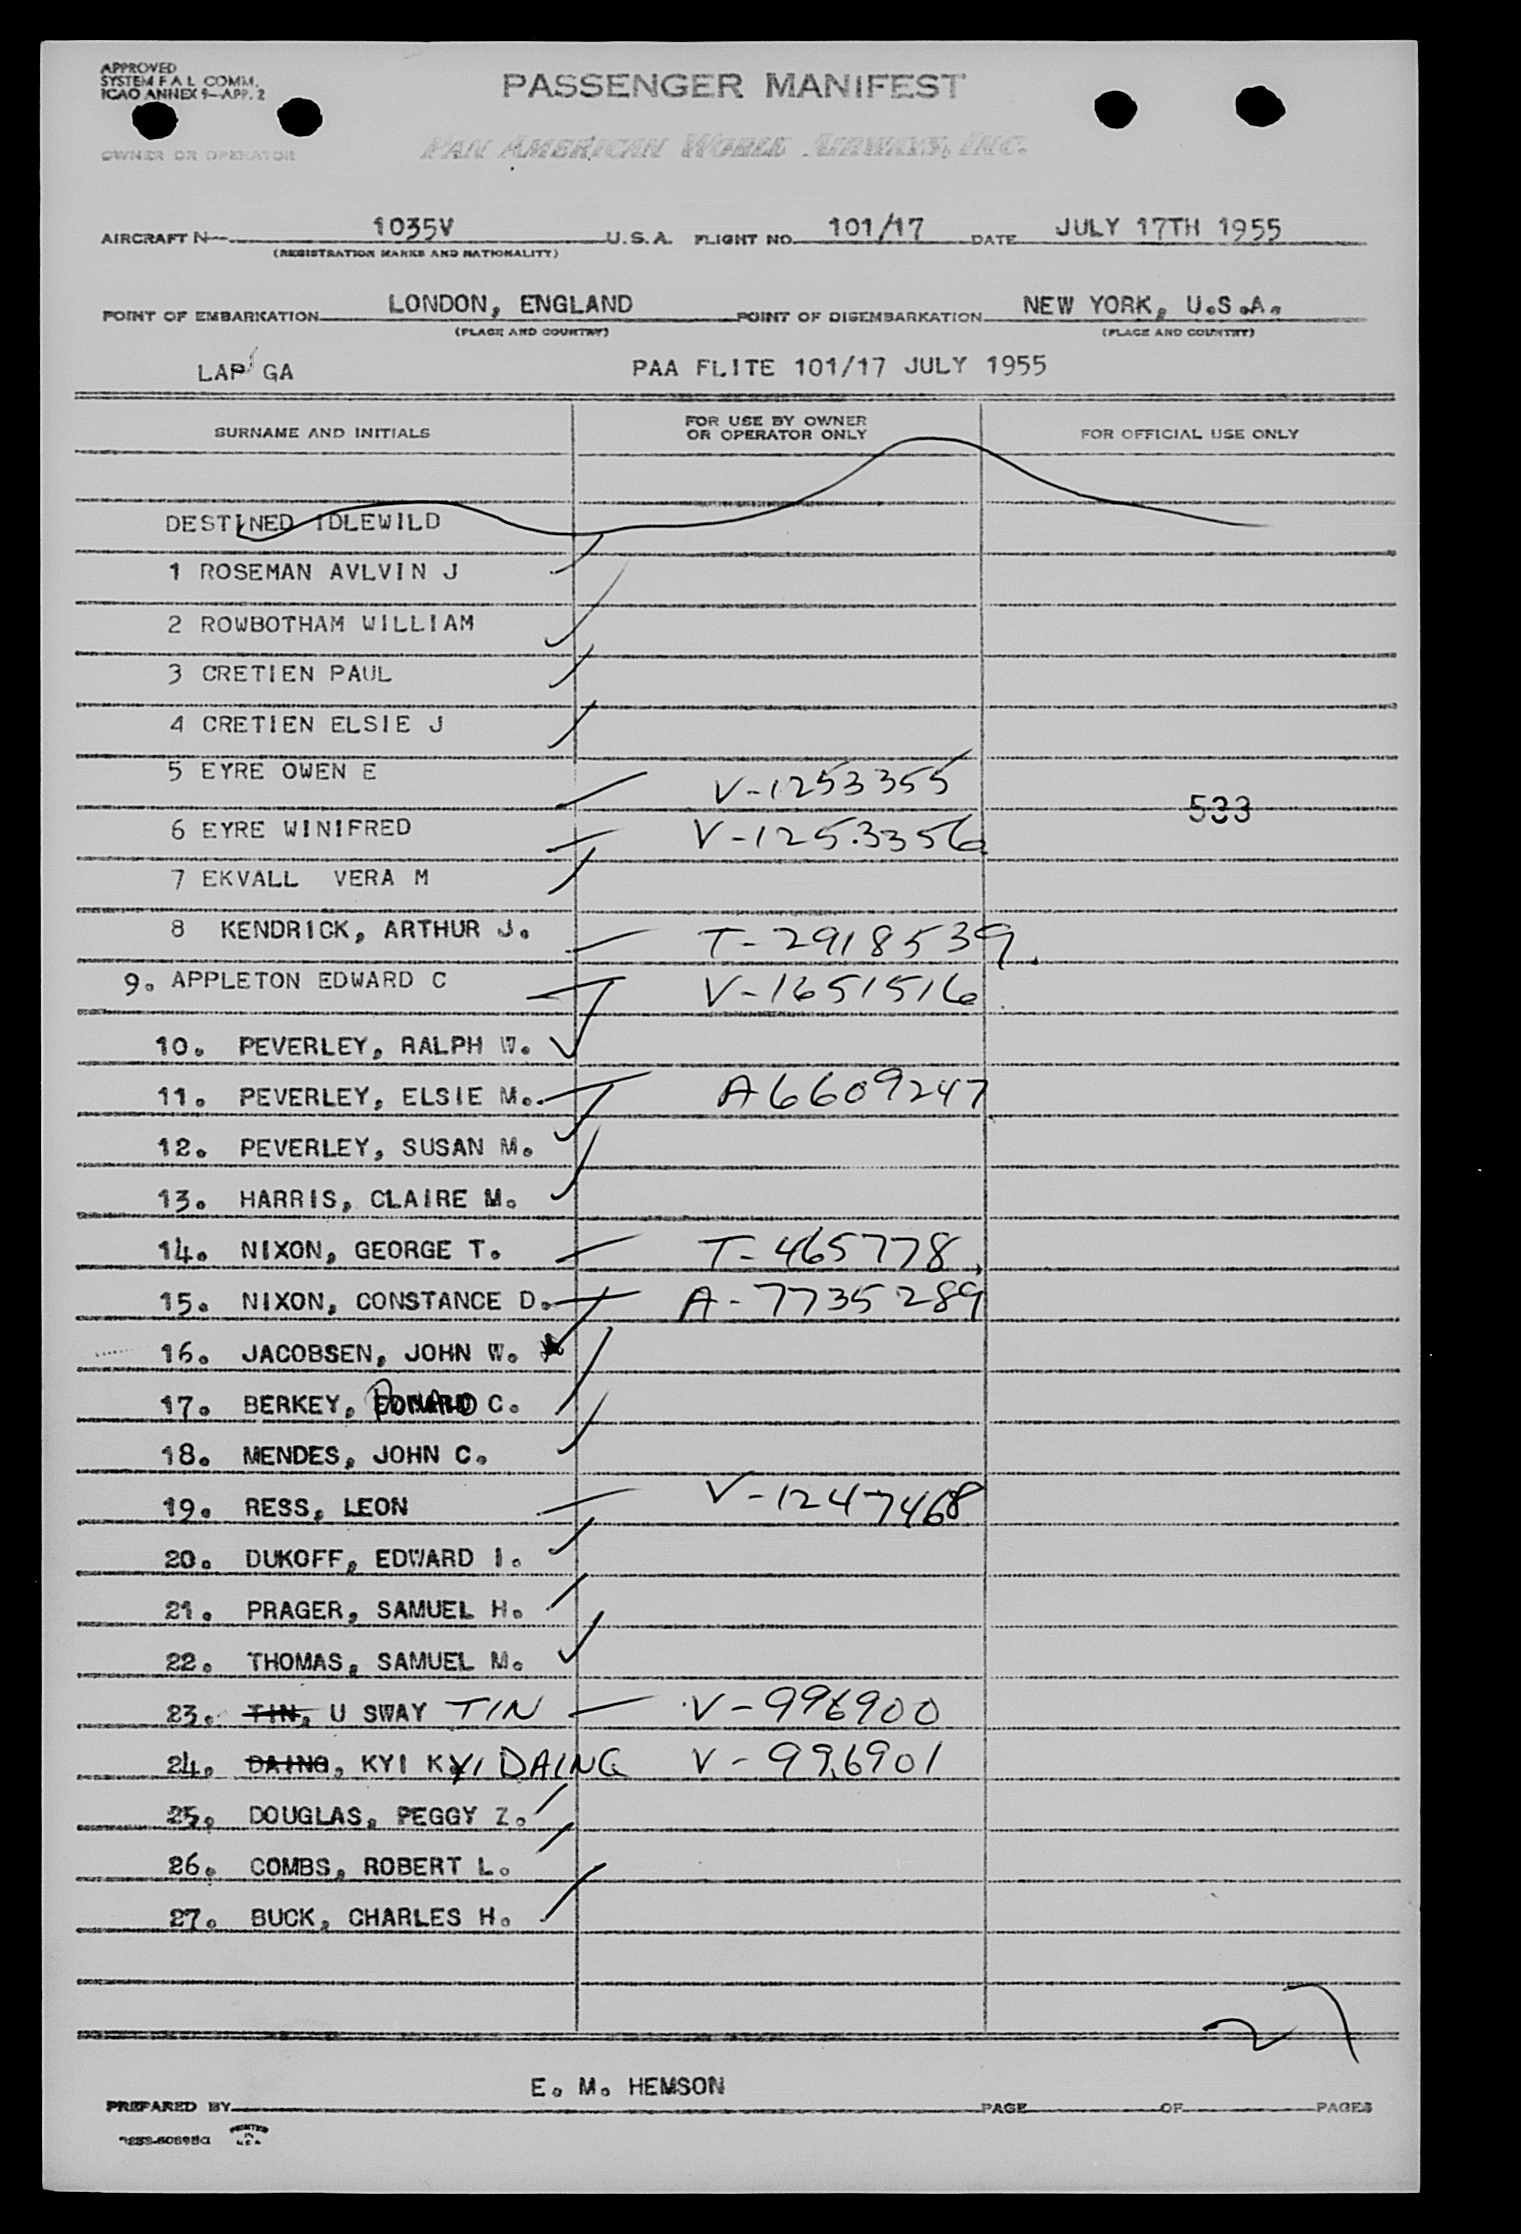 APPROVED
SYSTEM F A L COMM.
ICAO ANNEX 9—APP. 2
PASSENGER MANIFEST
OWNER OR OPERATOR
PAN AMERICAN WORLD AIRWAYS, INC.
AIRCRAFT N 1035V U.S.A. FLIGHT NO. 101/17 DATE JULY 17TH 1955
(REGISTRATION MARKS AND NATIONALITY)
POINT OF EMBARKATION LONDON, ENGLAND POINT OF DISEMBARKATION NEW YORK, U.S.A.
(PLACE AND COUNTRY) (PLACE AND COUNTRY)
LAP GA PAA FLITE 101/17 JULY 1955
SURNAME AND INITIALS FOR USE BY OWNER OR OPERATOR ONLY FOR OFFICIAL USE ONLY
DESTINED IDLEWILD
1 ROSEMAN AVLVIN J
2 ROWBOTHAM WILLIAM
3 CRETIEN PAUL
4 CRETIEN ELSIE J
5 EYRE OWEN E V-1253355
533
6 EYRE WINIFRED V-1253356
7 EKVALL VERA M
8 KENDRICK, ARTHUR J. T-2918539
9. APPLETON EDWARD C V-1651516
10. PEVERLEY, RALPH W.
11. PEVERLEY, ELSIE M. A6609247
12. PEVERLEY, SUSAN M.
13. HARRIS, CLAIRE M.
14. NIXON, GEORGE T. T-465778
15. NIXON, CONSTANCE D. A-7735289
16. JACOBSEN, JOHN W.
17. BERKEY, C.
18. MENDES, JOHN C.
19. RESS, LEON V-1247468
20. DUKOFF, EDWARD I.
21. PRAGER, SAMUEL H.
22. THOMAS, SAMUEL M.
23. TIN, U SWAY TIN V-996900
24. DAING, KYI KYI DAING V-996901
25. DOUGLAS, PEGGY Z.
26. COMBS, ROBERT L.
27. BUCK, CHARLES H.
27
E. M. HEMSON
PREPARED BY PAGE OF PAGES
PRINTED IN U.S.A.